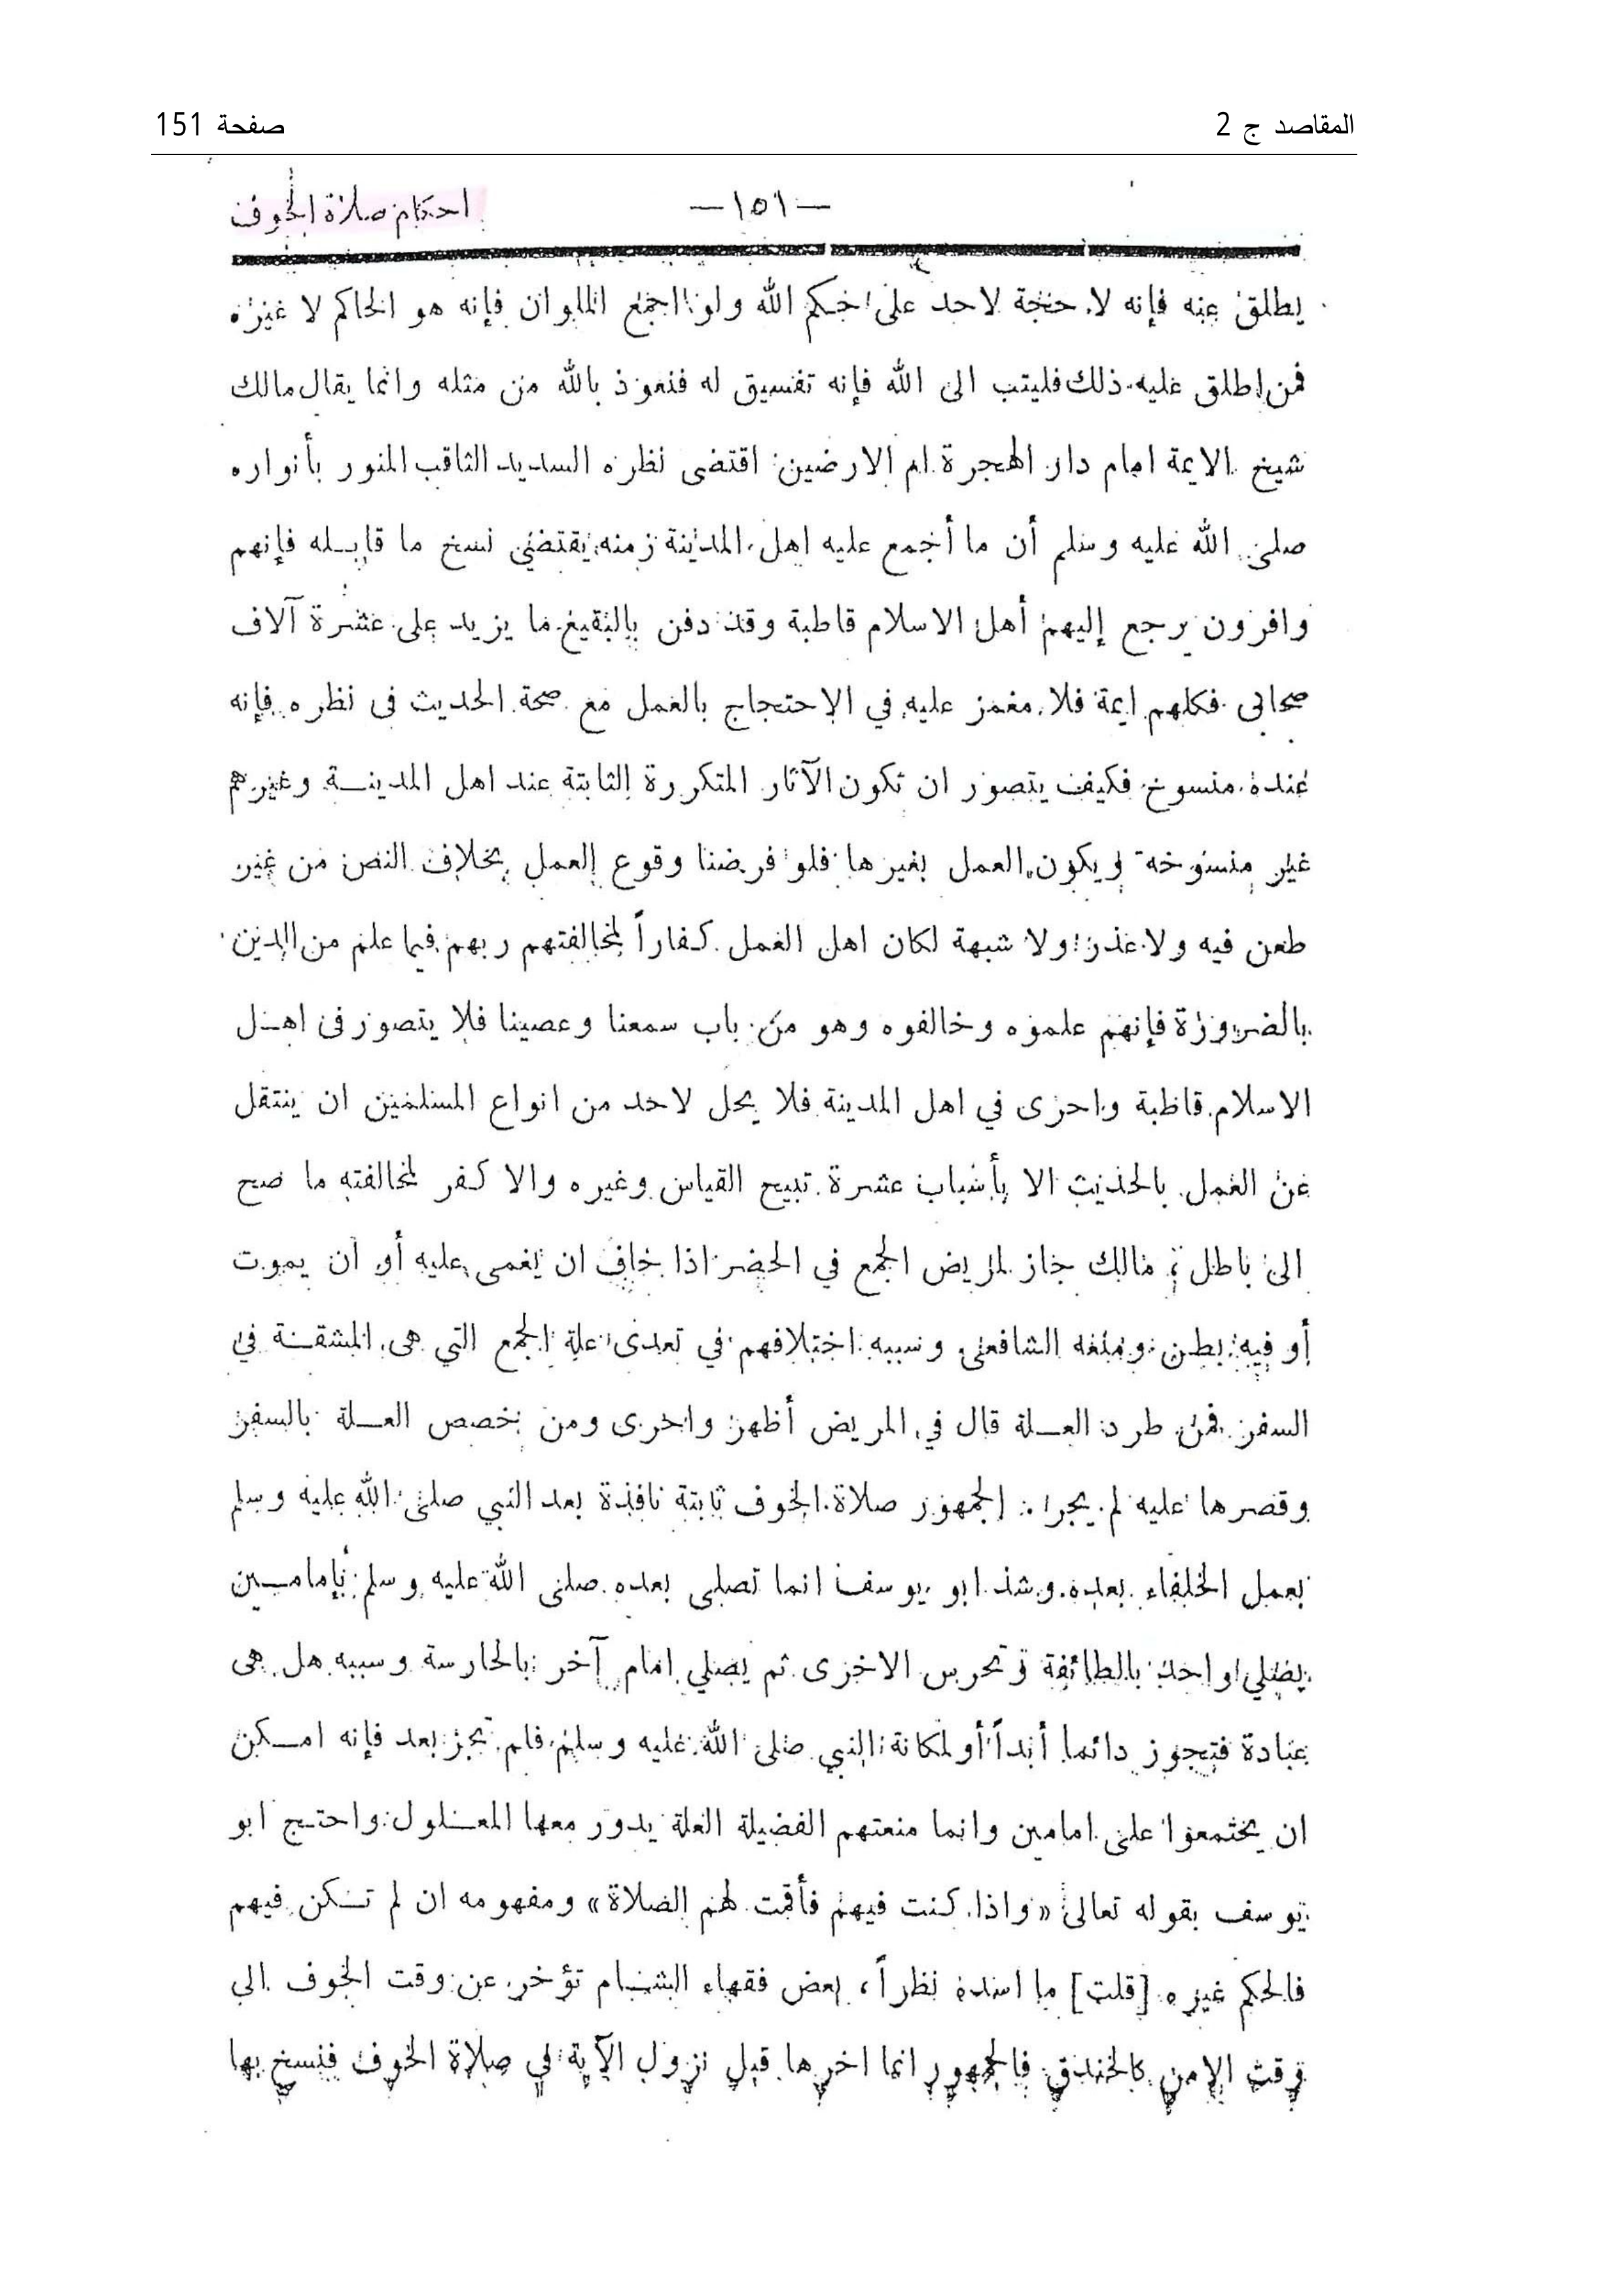 المقاصد ج 2 صفحة 151
احكام صلاة الخوف —١٥١—
يطلق عنه فإنه لا حجة لاحد على حكم الله ولو اجمع الملوان فإنه هو الحاكم لا غيره
فمن اطلق عليه ذلك فليتب الى الله فإنه تفسيق له فنعوذ بالله من مثله وانما يقال مالك
شيخ الايمة امام دار الهجرة ام الارضين اقتضى نظره السديد الثاقب المنور بأنواره
صلى الله عليه وسلم أن ما أجمع عليه اهل المدينة زمنه يقتضي نسخ ما قابله فإنهم
وافرون يرجع إليهم أهل الاسلام قاطبة وقد دفن بالبقيع ما يزيد على عشرة آلاف
صحابى فكلهم ايمة فلا مغمز عليه في الاحتجاج بالعمل مع صحة الحديث فى نظره فإنه
عنده منسوخ فكيف يتصور ان تكون الآثار المتكررة الثابتة عند اهل المدينة وغيرهم
غير منسوخة ويكون العمل بغيرها فلو فرضنا وقوع العمل بخلاف النص من غير
طعن فيه ولا عذر ولا شبهة لكان اهل العمل كفاراً لمخالفتهم ربهم فيما علم من الدين
بالضرورة فإنهم علموه وخالفوه وهو من باب سمعنا وعصينا فلا يتصور فى اهل
الاسلام قاطبة واحرى في اهل المدينة فلا يحل لاحد من انواع المسلمين ان ينتقل
عن العمل بالحديث الا بأسباب عشرة تبيح القياس وغيره والا كفر لمخالفته ما صح
الى باطل مالك جاز لمريض الجمع في الحضر اذا خاف ان يغمى عليه أو ان يموت
أو فيه بطن ومنعه الشافعى وسببه اختلافهم في تعدى علة الجمع التي هى المشقة في
السفر فمن طرد العلة قال في المريض أظهر واحرى ومن خصص العلة بالسفر
وقصرها عليه لم يجز الجمهور صلاة الخوف ثابتة نافذة بعد النبي صلى الله عليه وسلم
بعمل الخلفاء بعده وشذ ابو يوسف انما تصلى بعده صلى الله عليه وسلم بإمامين
يصلي واحد بالطائفة وتحرس الاخرى ثم يصلي امام آخر بالحارسة وسببه هل هى
عبادة فتجوز دائما أبداً أو لمكانة النبي صلى الله عليه وسلم فلم تجز بعد فإنه امكن
ان يجتمعوا على امامين وانما منعتهم الفضيلة العلة يدور معها المعلول واحتج ابو
يوسف بقوله تعالى «واذا كنت فيهم فأقمت لهم الصلاة» ومفهومه ان لم تكن فيهم
فالحكم غيره [قلت] ما اسده نظراً، بعض فقهاء الشام تؤخر عن وقت الخوف الى
وقت الامن كالخندق فالجمهور انما اخرها قبل نزول الآية في صلاة الخوف فنسخ بها